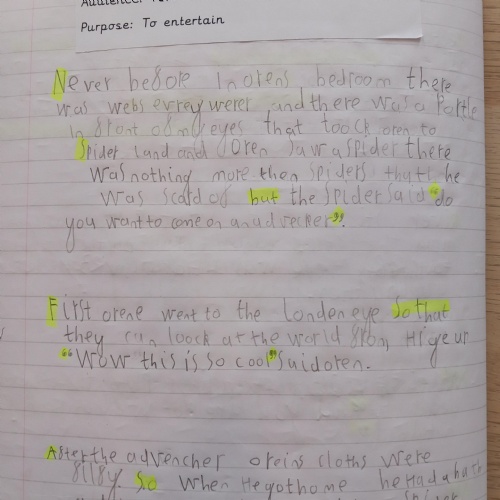 Purpose: To entertain
Never before In orens bedroom there
was webs evrey werer and there was a Portle
In front of my eyes that toock oren to
Spider Land and Oren saw a spider there
was nothing more then spiders thats he
was scard of but the spider said "do
you want to come on an advecher".
First orene went to the Londen eye so that
they can loock at the world from Higeur
"Wow this is so cool" said oren.
After the advencher oreins cloths were
filfy so when He got home he Had a